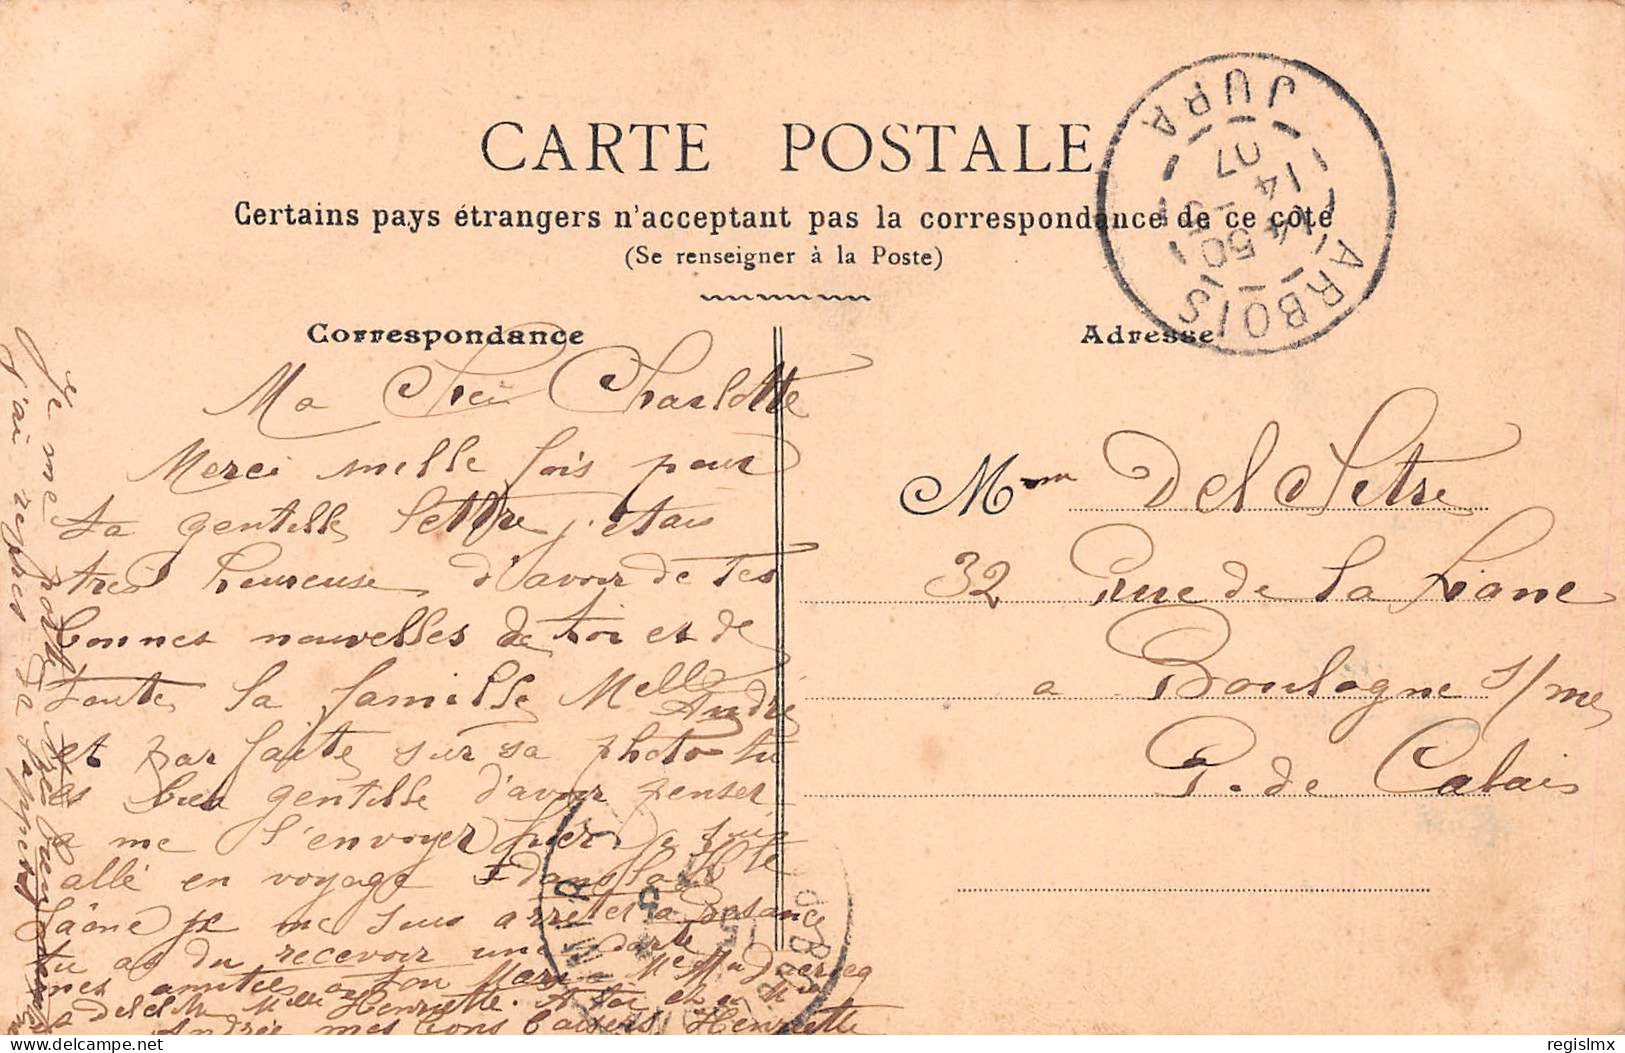 CARTE POSTALE
Certains pays étrangers n'acceptant pas la correspondance de ce côté
(Se renseigner à la Poste)
Correspondance
Adresse
ARBOIS
JURA
14 50
14
07
Ma Charlotte
Merci mille fois pour
ta gentille lettre j'etais
tres heureuse d'avoir de tes
bonnes nouvelles de toi et de
toute la famille Melle
André
et parfaite sur sa photo tu
es bien gentille d'avoir penser
a me l'envoyer hier je suis
allé en voyage dans la Hte
Saône je me suis arreter a Besance
tu as du recevoir une carte
mes amities a ton Mari
Henriette. A toi et a Mie
Andrée mes bons baisers Henriette
Je me porte
j'ai repris
Mme Del Setre
32 rue de la Liane
a Boulogne s/me
P. de Calais
delcampe.net
regislmx